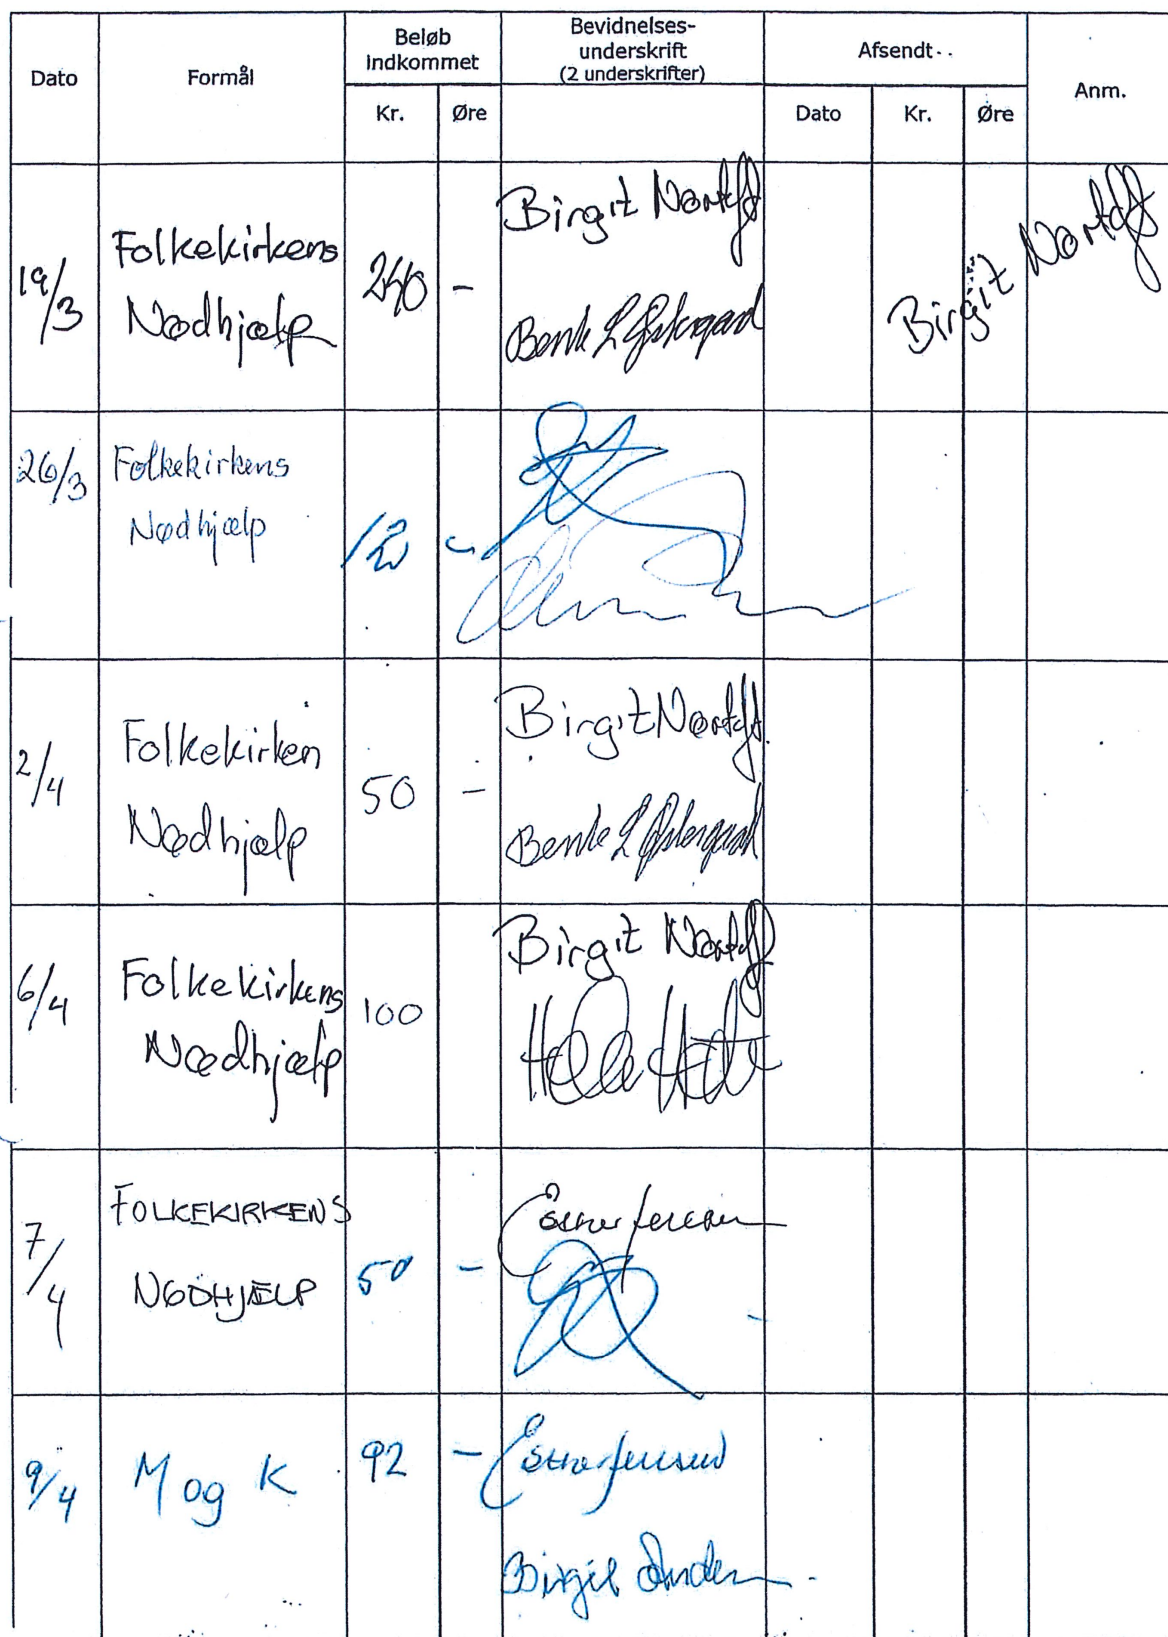 Dato
Formål
Beløb
indkommet
Kr.
Øre
Bevidnelses-
underskrift
(2 underskrifter)
Afsendt
Dato
Kr.
Øre
Anm.
19/3
Folkekirkens
Nødhjælp
240
-
Birgit Nørtoft
Bente L Østergaard
Birgit Nørtoft
26/3
Folkekirkens
Nødhjælp
-
2/4
Folkekirken
Nødhjælp
50
-
Birgit Nørtoft
Bente L Østergaard
6/4
Folkekirkens
Nødhjælp
100
Birgit Nørtoft
Helle
7/4
FOLKEKIRKENS
NØDHJÆLP
50
-
9/4
M og K
92
-
Birgit